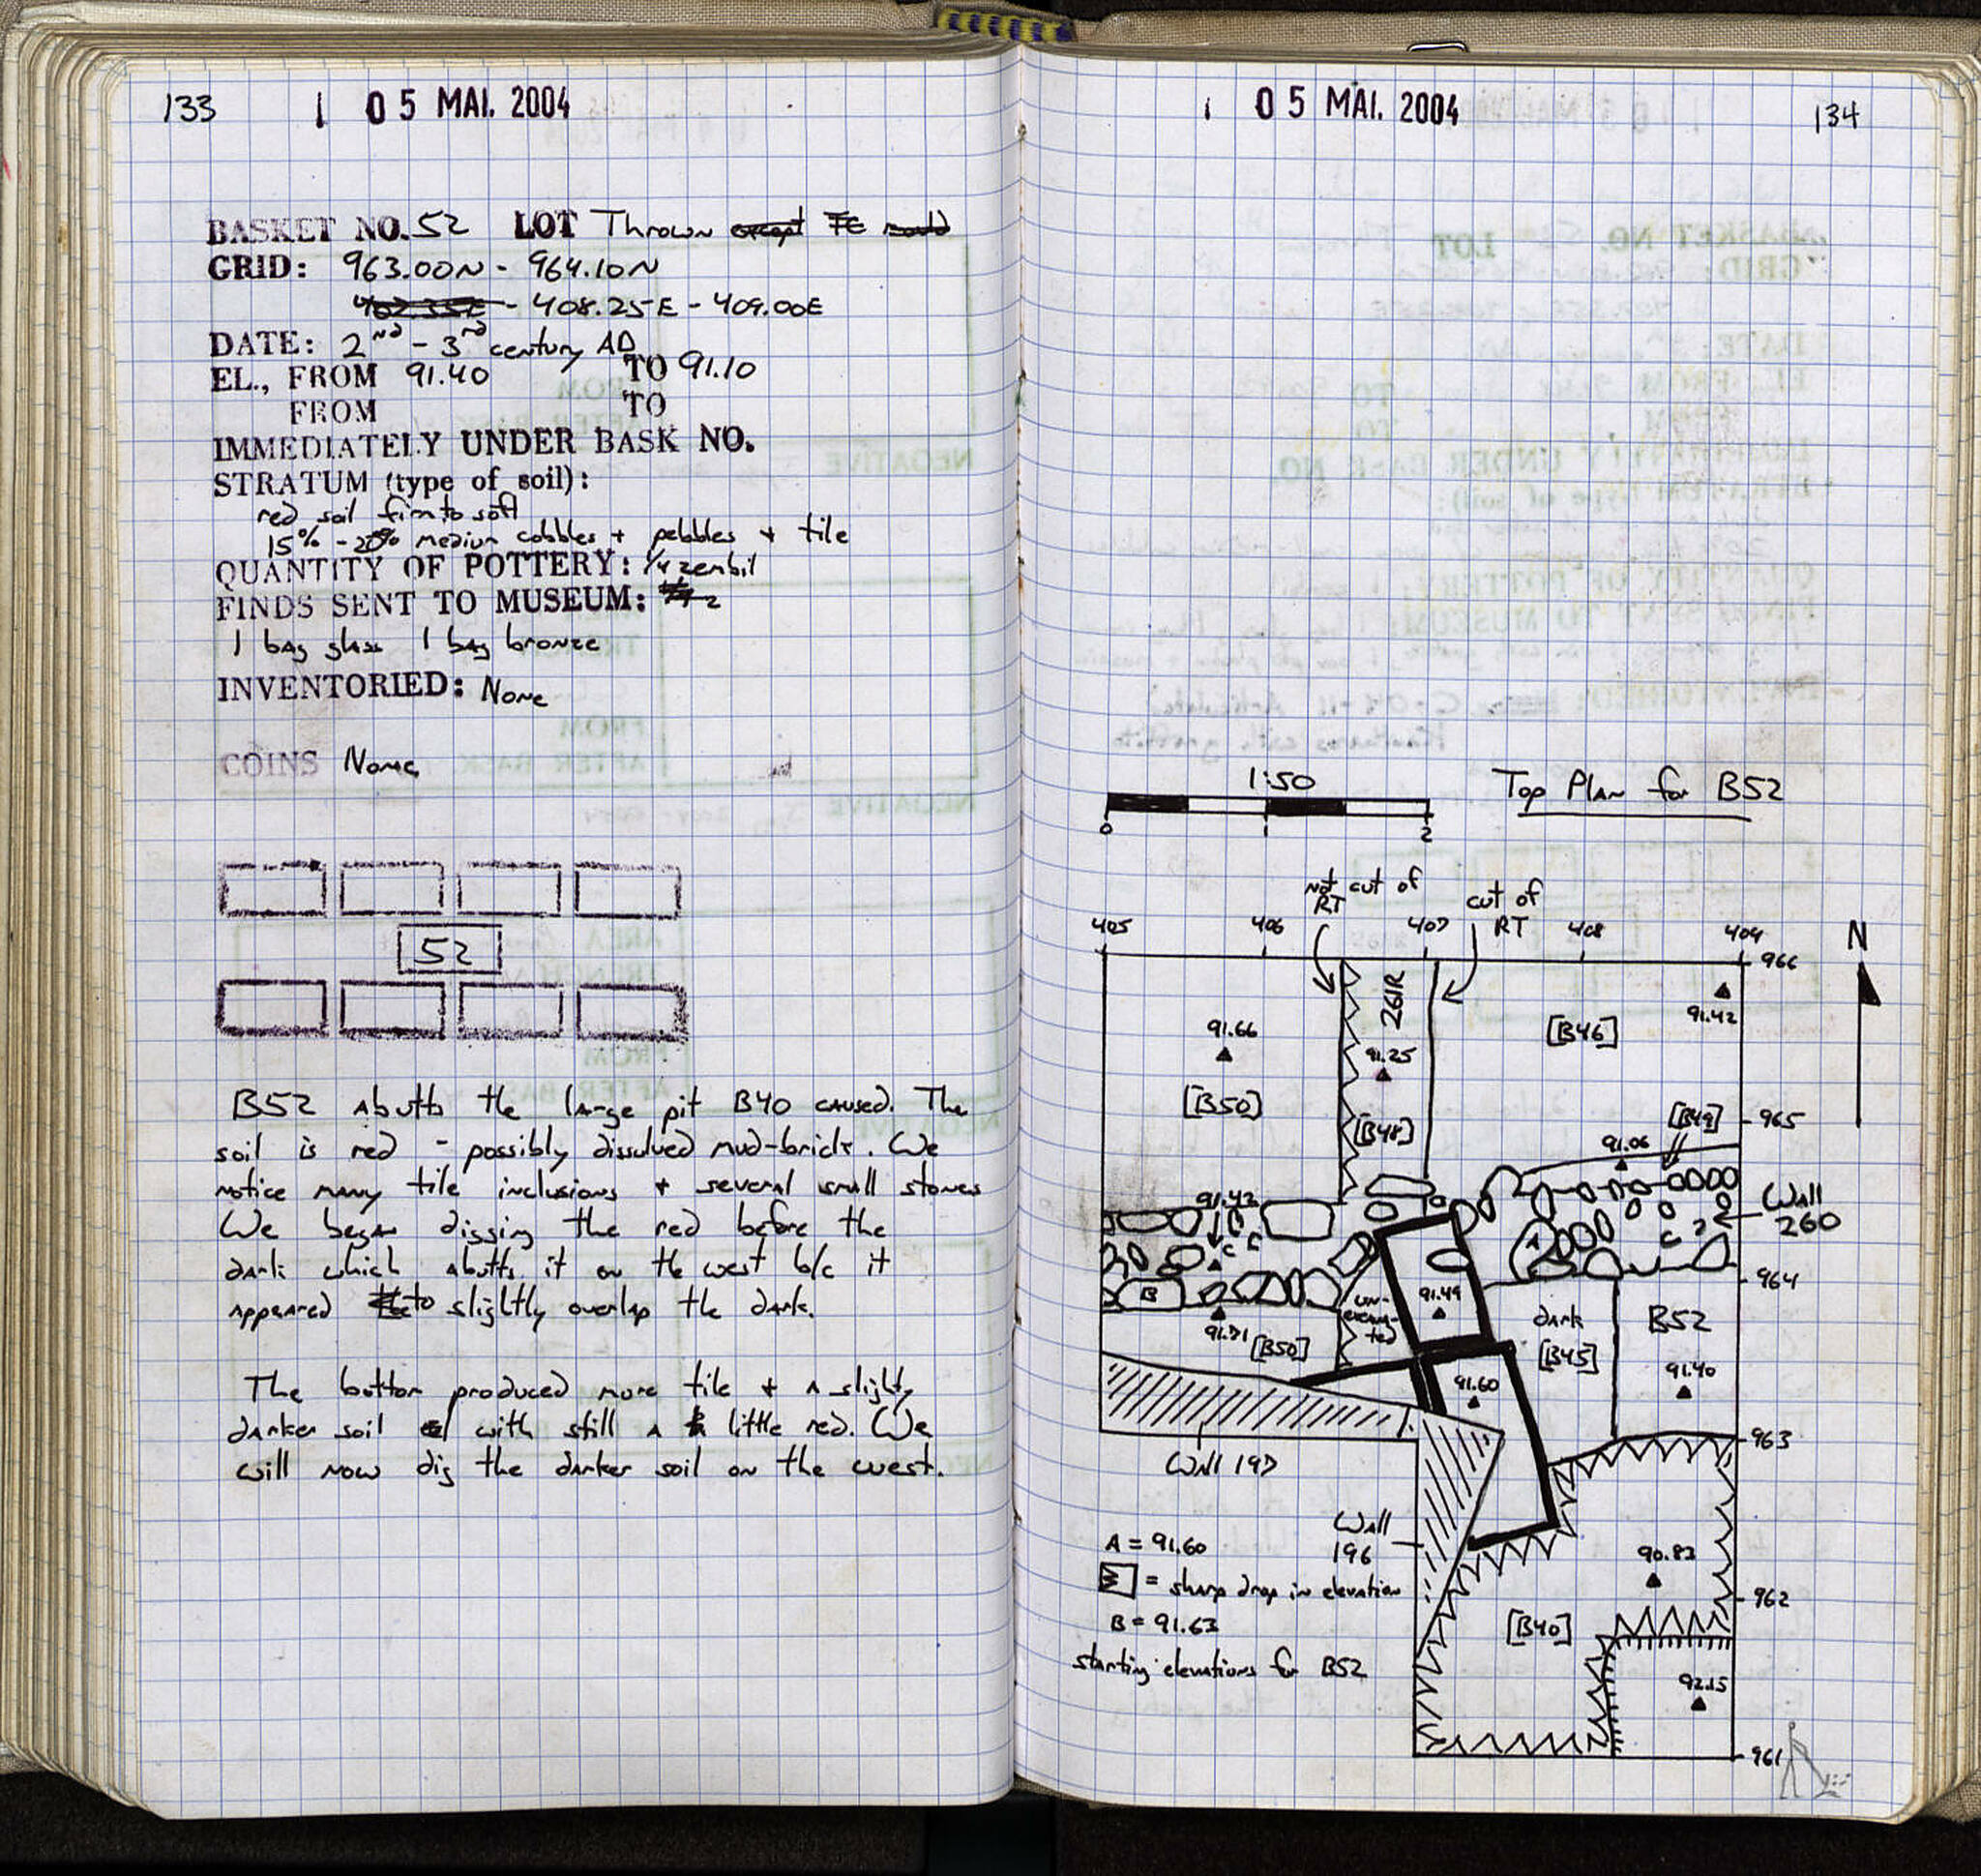 133
1 05 MAI. 2004
BASKET NO. 52 LOT Thrown
GRID: 963.00N - 964.10N
- 408.25E - 409.00E
DATE: 2nd - 3rd century AD
EL., FROM 91.40 TO 91.10
FROM TO
IMMEDIATELY UNDER BASK NO.
STRATUM (type of soil):
red soil firm to soft
15% - 20% medium cobbles + pebbles + tile
QUANTITY OF POTTERY: 1/4 zembil
FINDS SENT TO MUSEUM: 2
1 bag glass 1 bag bronze
INVENTORIED: None
COINS None
52
B52 abutts the large pit B40 caused. The
soil is red - possibly dissolved mud-brick. We
notice many tile inclusions + several small stones
We began digging the red before the
dark which abutts it on the west b/c it
appeared to slightly overlap the dark.
The bottom produced more tile + a slightly
darker soil with still a little red. We
will now dig the darker soil on the west.
1 05 MAI. 2004
134
1:50
0 1 2
Top Plan for B52
not cut of
RT
cut of
RT
405 406 407 408 409
N
966
261R
91.42
91.66
[B46]
91.25
[B50]
[B48]
[B49]
965
91.06
91.43
Wall
260
C C
C ?
A
964
B
un-
excava-
ted
91.49
dark
B52
91.71
[B50]
[B45]
91.40
91.60
963
Wall 197
Wall
196
A = 91.60
= sharp drop in elevation
B = 91.63
starting elevations for B52
90.83
962
[B40]
92.15
961